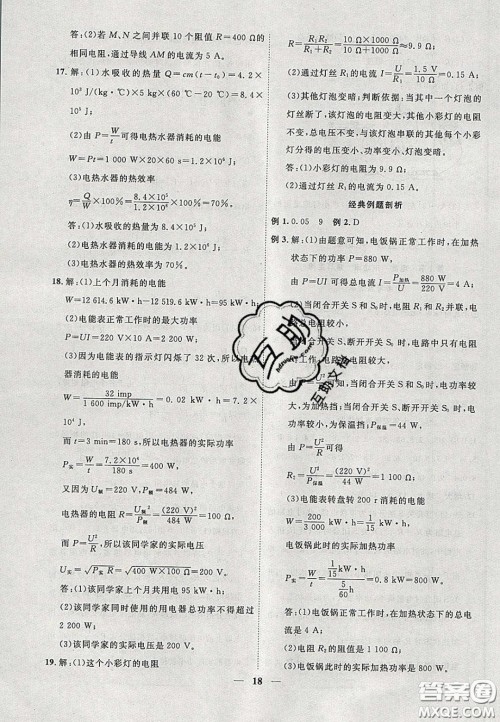 答:(2)若 M、N 之间接 10 个阻值 R=400 Ω的
相同电阻,通过导线 AM 的电流为 5 A。
17. 解:(1)水吸收的热量 Q=cm(t-t₀)=4.2×
10³ J/(kg·℃)×5 kg×(60 ℃-20 ℃)=8.4×
10⁵ J;
(2)由 P=W/t 可得电热水器消耗的电能
W=Pt=1 000 W×20×60 s=1.2×10⁶ J;
(3)电热水器的热效率
η=Q/W×100%=8.4×10⁵/1.2×10⁶×100%=70%。
答:(1)水吸收的热量为 8.4×10⁵ J;
(2)电热水器消耗的电能为 1.2×10⁶ J;
(3)电热水器的热效率为 70%。
18. 解:(1)上个月消耗的电能
W=12 614.6 kW·h-12 519.6 kW·h=95 kW·h;
(2)电能表正常工作时的最大功率
P=UI=220 V×10 A=2 200 W;
(3)因为电能表的指示灯闪烁了 32 次,所以电
器消耗的电能
W=32 imp/1 600 imp/kW·h=0.02 kW·h=7.2×10⁴ J
由 t=3 min=180 s,所以电热器的实际功率
P实=W/t=7.2×10⁴ J/180 s=400 W
又因为 U额=220 V,P额=484 W
电热器的电阻 R=U额²/P额=(220 V)²/484 W=100 Ω
而由 P=U²/R,所以该同学家的实际电压
U实=√P实R=√400 W×100 Ω=200 V。
答:(1)该同学家上个月共用电 95 kW·h;
(2)该同学家同时使用的用电器总功率不得超过
2 200 W;
(3)该同学家的实际电压是 200 V。
19. 解:(1)这个小彩灯的电阻
R=R₁R₂/R₁+R₂=10 Ω×1000 Ω/10 Ω+1000 Ω=9.9 Ω;
(2)通过灯丝 R₁的电流 I=U/R₁=1.5 V/10 Ω=0.15 A;
(3)其他灯泡变暗;判断依据:当其中一个灯泡的
灯丝断了,所在的那个小彩灯的电阻变大,总电阻
变大,总电压不变,与该灯泡串联的其他每个小彩
灯分得的电压变小,实际功率变小,其他灯泡变暗。
答:(1)小彩灯的电阻为 9.9 Ω;
(2)通过灯丝 R₁的电流为 0.15 A。
经典例题剖析
例 1. 0.05 9 例 2. D
例 3. 解:(1)由题意可知,电饭锅正常工作时,在加热
状态下的功率 P=880 W,
由 P=UI 可得,I=P加热/U=880 W/220 V=4 A;
(2)当闭合开关 S 和 S₀时,电阻 R₁和 R₂并联,
闭合开关 S、断开开关 S₀时,电路中只有电阻
R₂工作,电路电阻较大,
功率较大,当闭合开关 S、断开开关 S₀时,电功率
较小,为保温挡;P保温=44 W,
由 P=U²/R 可得
R₂=U²/P保温=(220 V)²/44 W=1 100 Ω;
(3)电能表转盘转 200 r 消耗的电能
W=200/3 000 kW·h=1/15 kW·h
电饭锅此时的实际加热功率
P实=W/t=1/15 kW·h/5/60 h=0.8 kW=800 W。
答:(1)电饭锅正常工作时,在加热状态下的总电
流是 4 A;
(2)电阻 R₂的阻值是 1 100 Ω;
(3)电饭锅此时的实际加热功率是 800 W。
18
互助
互助文档
答案圈
MXQE.COM